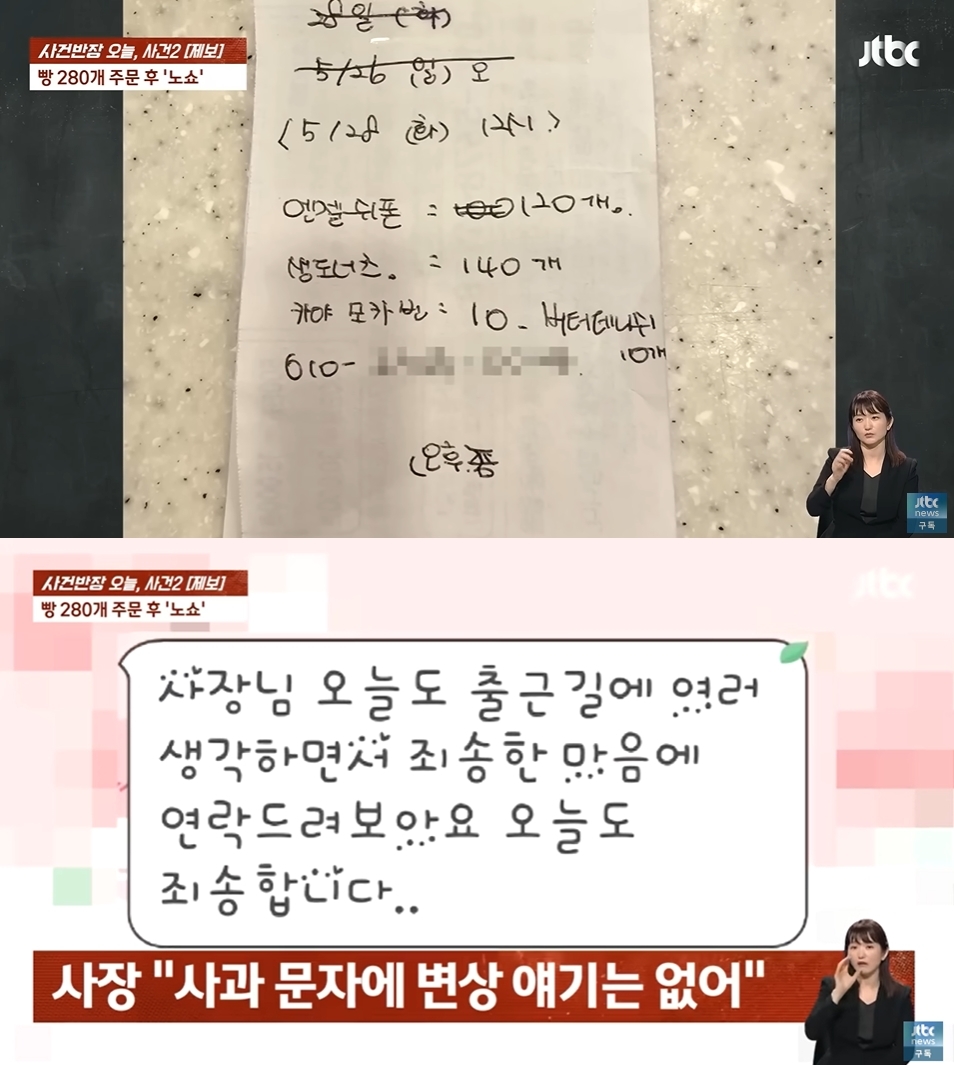 사건반장 오늘, 사건2 [제보]
빵 280개 주문 후 '노쇼'
jtbc
28일 (화)
5/26 (일) 오
<5/28 (화) 12시>
엔젤쉬폰 : 100 120개.
생도너츠. : 140개
카야 모카번 : 10. 버터데니쉬
10개
010-
오후쯤
jtbc
news
구독
사건반장 오늘, 사건2 [제보]
빵 280개 주문 후 '노쇼'
jtbc
사장님 오늘도 출근길에 여러
생각하면서 죄송한 맘음에
연락드려보았요 오늘도
죄송합니다..
사장 "사과 문자에 변상 얘기는 없어"
jtbc
news
구독